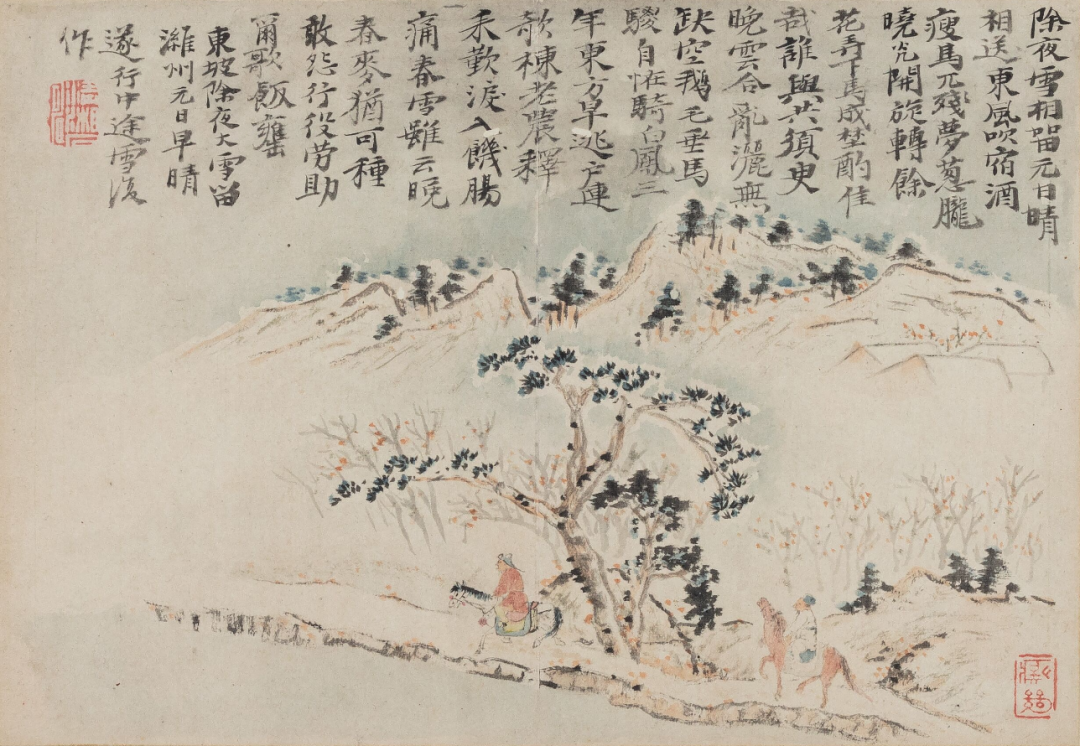 除夜雪相留元日晴
相送東風吹宿酒
瘦馬兀殘夢葱朧
曉光開旋轉餘
花弄下馬成埜酌佳
哉誰與共須臾
晚雲合亂灑無
缺空鵝毛垂馬
騣自恠騎白鳳三
年東方旱逃戶連
欹棟老農釋
耒歎淚入饑腸
痛春雪雖云晚
春麥猶可種
敢怨行役勞助
爾歌飯甕
東坡除夜大雪留
濰州元日早晴
遂行中途雪復
作